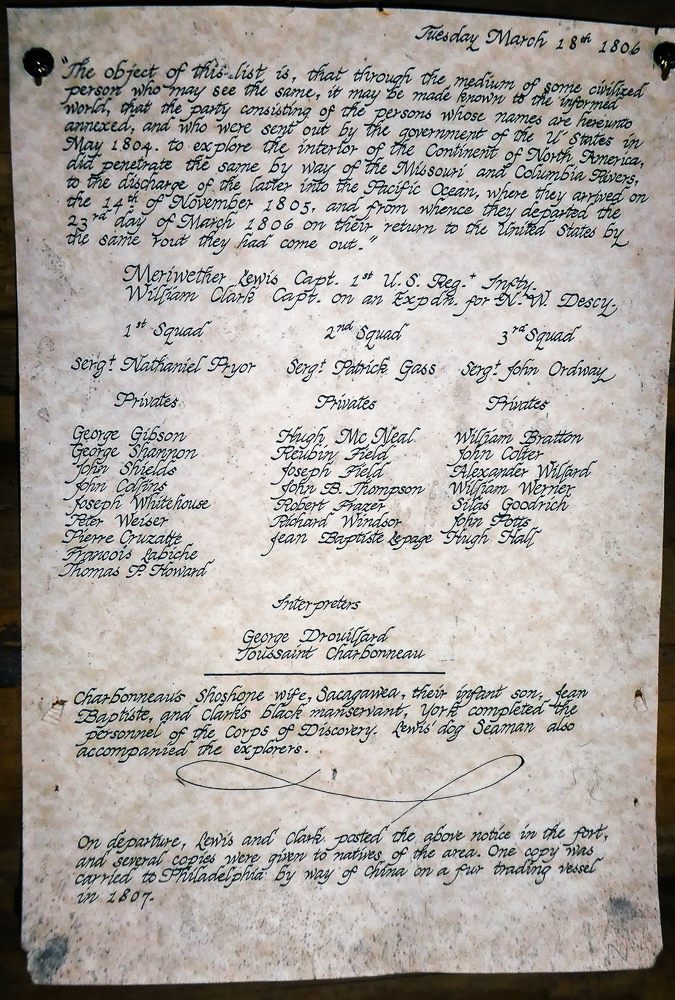 Tuesday March 18th 1806
"The object of this list is, that through the medium of some civilized
person who may see the same, it may be made known to the informed
world, that the party consisting of the persons whose names are hereunto
annexed, and who were sent out by the government of the U' States in
May 1804. to explore the interior of the Continent of North America,
did penetrate the same by way of the Missouri and Columbia Rivers,
to the discharge of the latter into the Pacific Ocean, where they arrived on
the 14th of November 1805, and from whence they departed the
23rd day of March 1806 on their return to the United States by
the same rout they had come out."
Meriwether Lewis Capt. 1st U.S. Reg.t Infty.
William Clark Capt. on an Expdn. for N.W. Descy.
1st Squad 2nd Squad 3rd Squad
Sergt Nathaniel Pryor Sergt Patrick Gass Sergt John Ordway
Privates Privates Privates
George Gibson Hugh Mc Neal William Bratton
George Shannon Reubin Field John Colter
John Shields Joseph Field Alexander Willard
John Collins John B. Thompson William Werner
Joseph Whitehouse Robert Frazer Silas Goodrich
Peter Weiser Richard Windsor John Potts
Pierre Cruzatte Jean Baptiste Lepage Hugh Hall
Francois Labiche
Thomas P. Howard
Interpreters
George Drouillard
Toussaint Charbonneau
Charbonneau's Shoshone wife, Sacagawea, their infant son, Jean
Baptiste, and Clark's black manservant, York completed the
personnel of the Corps of Discovery. Lewis' dog Seaman also
accompanied the explorers.
On departure, Lewis and Clark posted the above notice in the fort,
and several copies were given to natives of the area. One copy was
carried to Philadelphia by way of China on a fur trading vessel
in 1807.